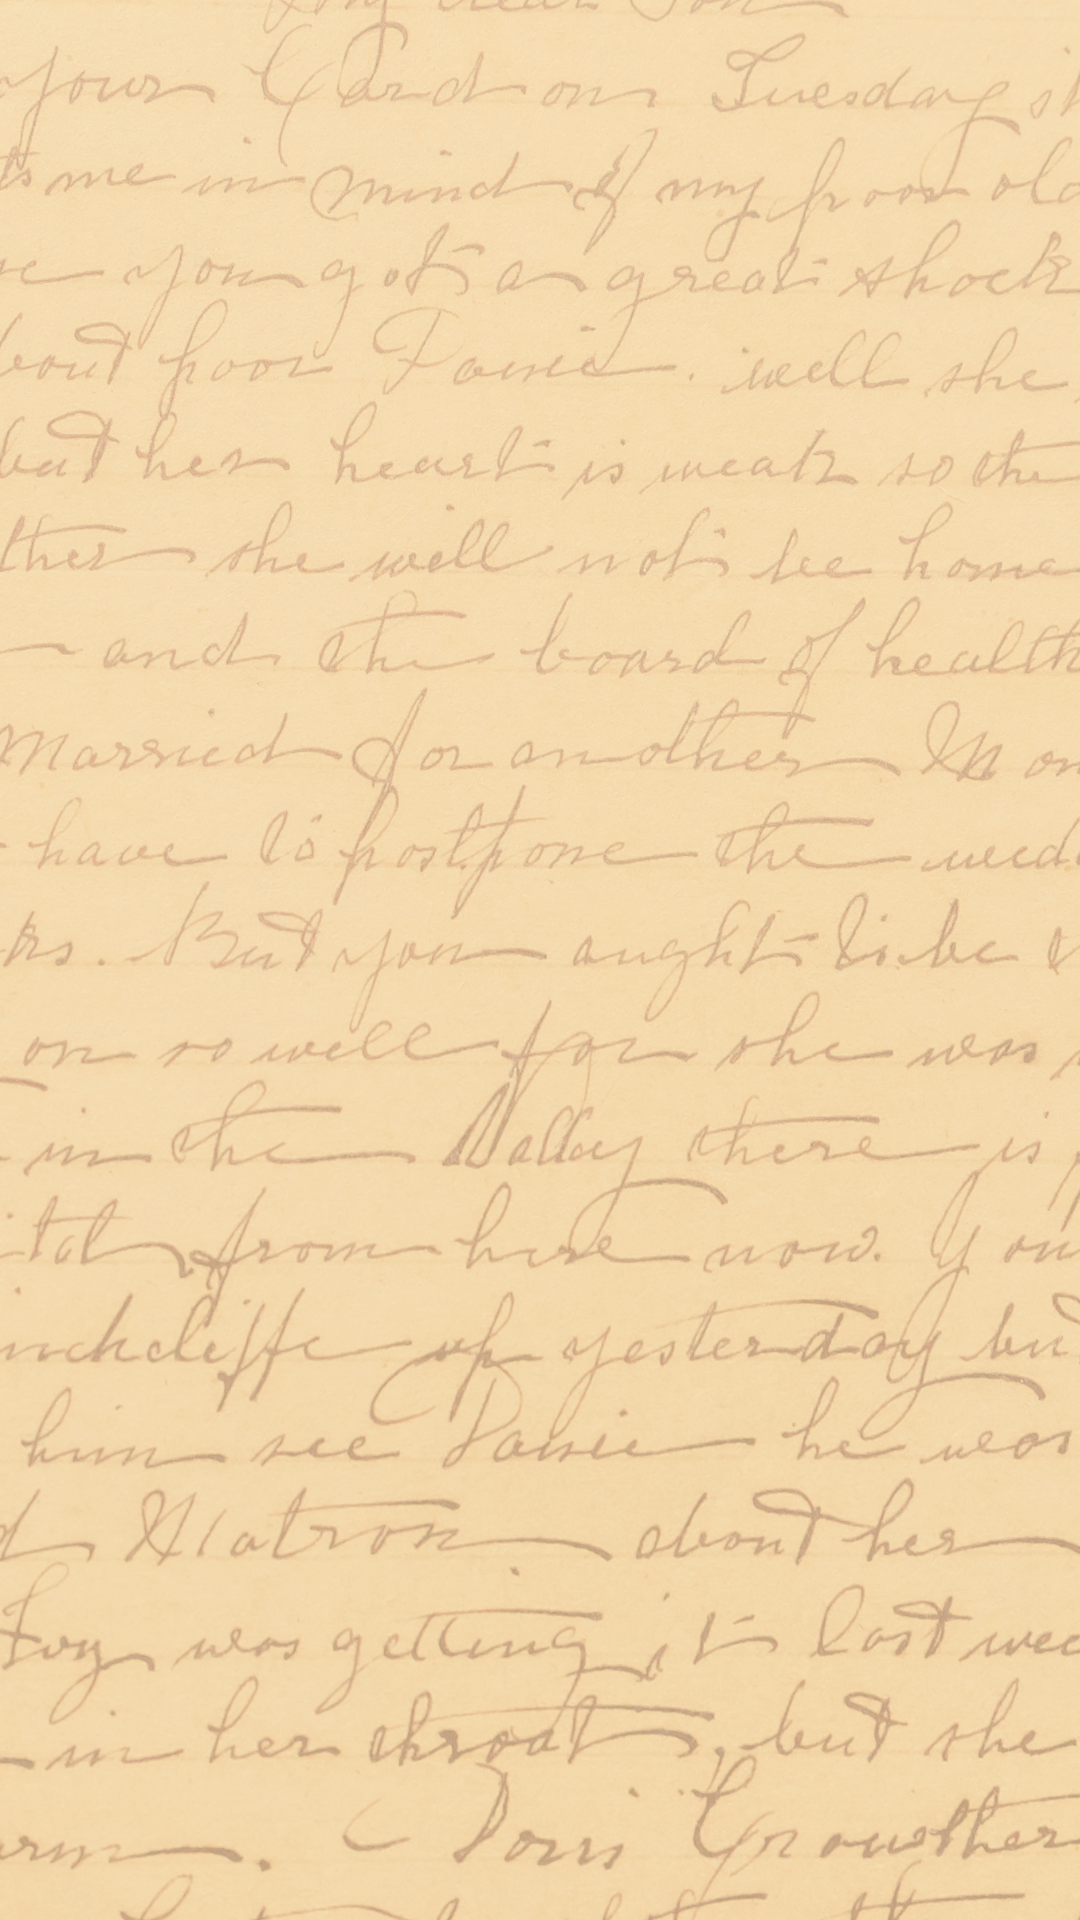 My dear Son
your Card on Tuesday it
ts me in mind of my poor old
you got a great shock
bout poor Janie. well she
but her heart is weak so the
ther she will not be home
and the board of health
Married for another Mon
have to postpone the wedd
rs. But you aught to be
on so well for she was
in the Valley there is
ital from here now. you
inchcliffe up yesterday but
him see Janie he was
d Matron about her
Ivy was getting it last wee
in her throat, but she
arm. Doris Growther